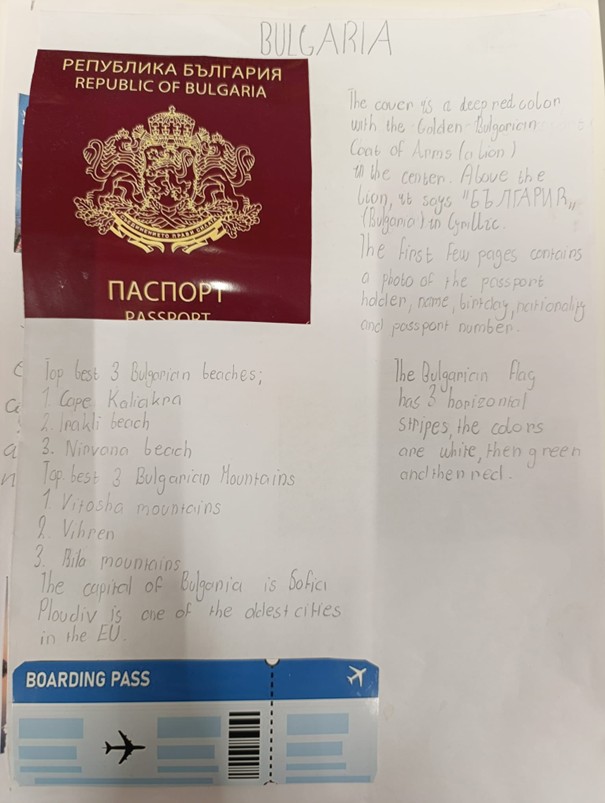 BULGARIA
РЕПУБЛИКА БЪЛГАРИЯ
REPUBLIC OF BULGARIA
СЪЕДИНЕНИЕТО ПРАВИ СИЛАТА
ПАСПОРТ
PASSPORT
The cover is a deep red color
with the Golden Bulgarian
Coat of Arms (a lion)
in the center. Above the
lion, it says "БЪЛГАРИЯ„
(Bulgaria) in Cyrillic.
The first few pages contains
a photo of the passport
holder, name, birtday, nationality
and passport number.
Top best 3 Bulgarian beaches;
1. Cape Kaliakra
2. Irakli beach
3. Nirvana beach
Top best 3 Bulgarian Mountains
1. Vitosha mountains
2. Vihren
3. Rila mountains
The capital of Bulgaria is Sofia
Ploudiv is one of the oldest cities
in the EU.
The Bulgarian flag
has 3 horizontal
stripes, the colors
are white, then green
and then red.
BOARDING PASS